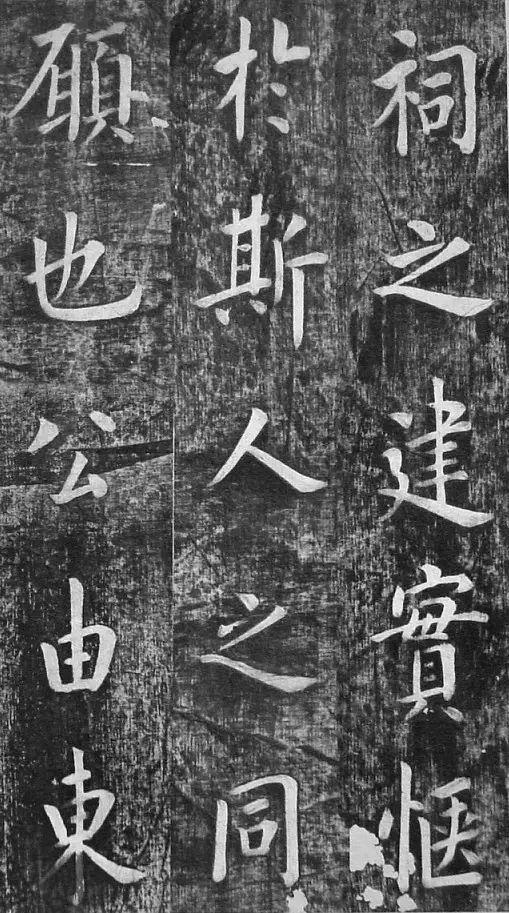 祠之建實愜
於斯人之同
願也公由東